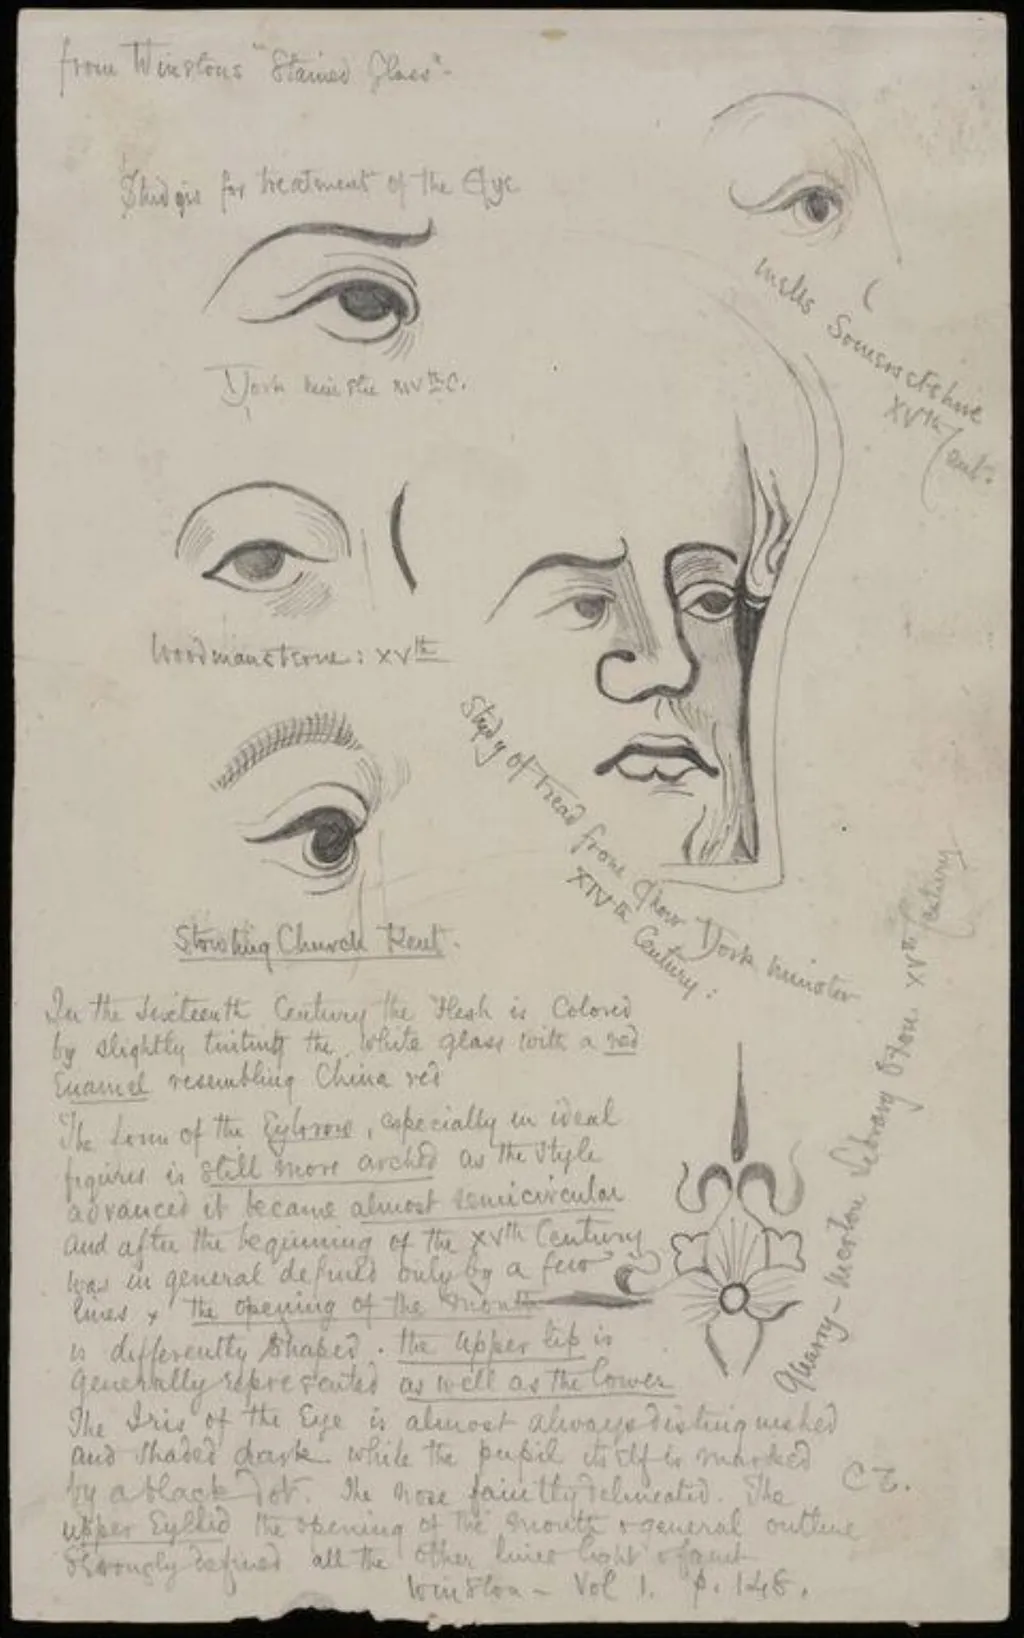 from Winstons "Stained Glass"-
Studies for treatment of the Eye
York minster XIVth C.
mells Somersetshire
XVth Cent.
Woodmansterne: XVth
Study of Head from York minster
XIVth Century:
Stowting Church Kent.
In the Sixteenth Century the Flesh is Colored
by slightly tinting the white glass with a red
Enamel resembling China red
The form of the Eybrow, especially in ideal
figures is still more arched as the style
advanced it became almost semicircular
and after the beginning of the XVth Century
was in general defined only by a few
lines + the opening of the mouth
is differently shaped. the upper lip is
generally represented as well as the lower
The Iris of the Eye is almost always distinguished
and shaded dark while the pupil itself is marked
by a black dot. The nose faintly delineated. The
upper Eyelid the opening of the mouth & general outline
strongly defined all the other lines light & faint
Winston - Vol 1. p. 148.
Quarry - Merton Library Oxon. XVth Century